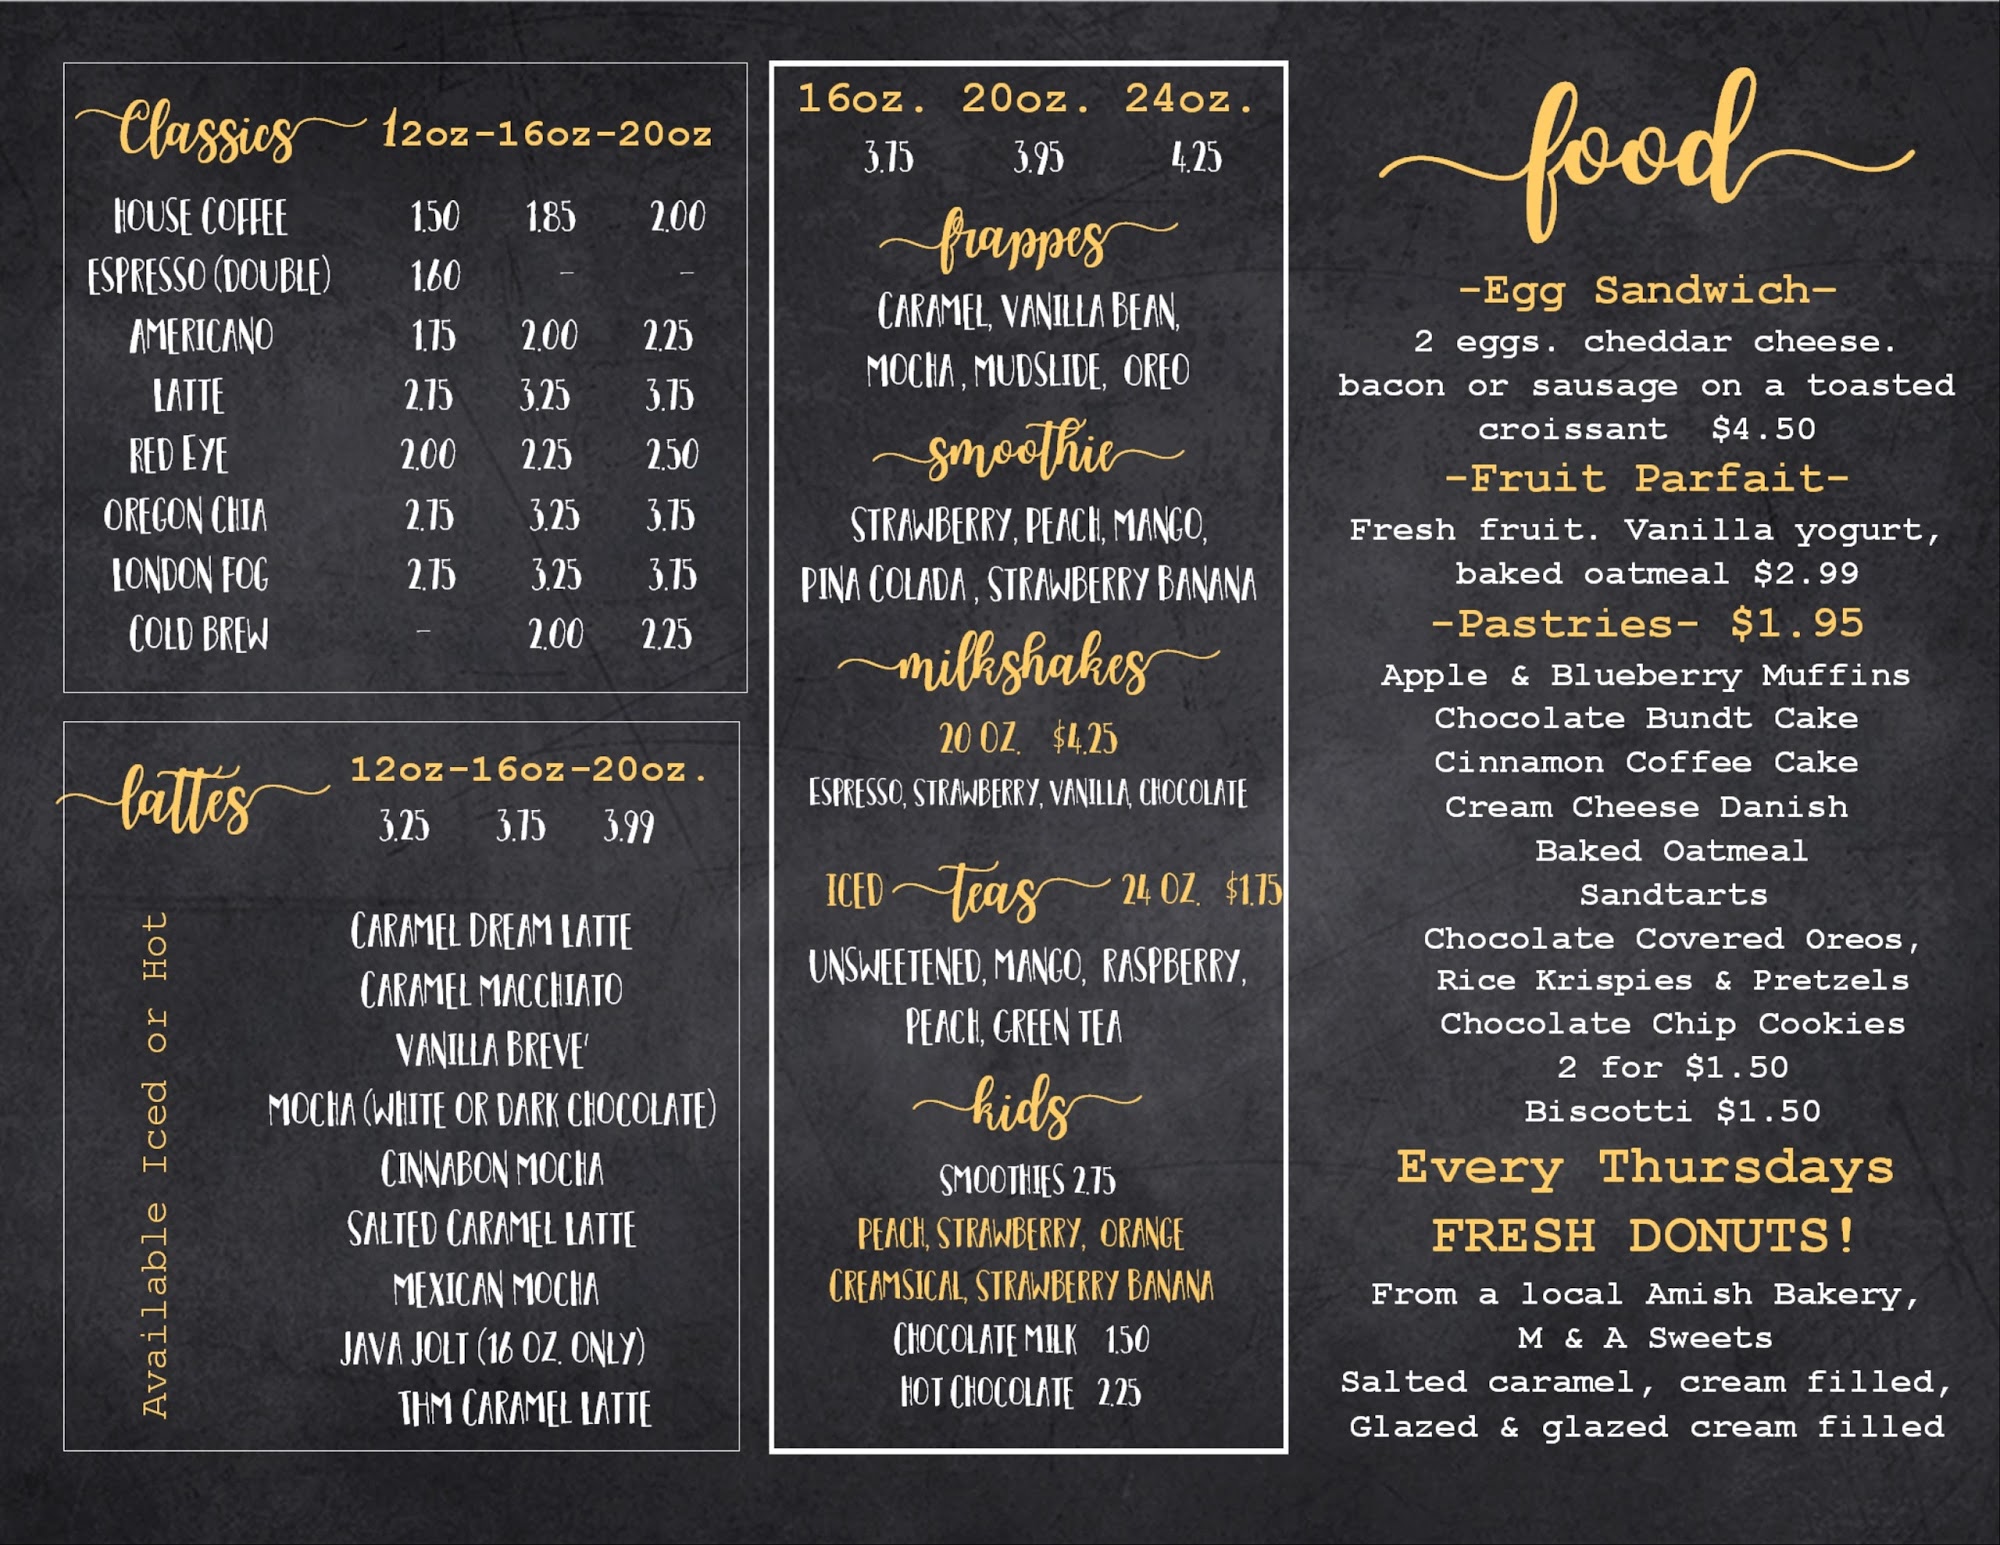 Classics 12oz-16oz-20oz
HOUSE COFFEE 1.50 1.85 2.00
ESPRESSO (DOUBLE) 1.60 - -
AMERICANO 1.75 2.00 2.25
LATTE 2.75 3.25 3.75
RED EYE 2.00 2.25 2.50
OREGON CHIA 2.75 3.25 3.75
LONDON FOG 2.75 3.25 3.75
COLD BREW - 2.00 2.25
lattes 12oz-16oz-20oz.
3.25 3.75 3.99
Available Iced or Hot
CARAMEL DREAM LATTE
CARAMEL MACCHIATO
VANILLA BREVE'
MOCHA (WHITE OR DARK CHOCOLATE)
CINNABON MOCHA
SALTED CARAMEL LATTE
MEXICAN MOCHA
JAVA JOLT (16 OZ. ONLY)
THM CARAMEL LATTE
16oz. 20oz. 24oz.
3.75 3.95 4.25
frappes
CARAMEL, VANILLA BEAN,
MOCHA, MUDSLIDE, OREO
smoothie
STRAWBERRY, PEACH, MANGO,
PINA COLADA, STRAWBERRY BANANA
milkshakes
20 OZ. $4.25
ESPRESSO, STRAWBERRY, VANILLA, CHOCOLATE
ICED teas 24 OZ. $1.75
UNSWEETENED, MANGO, RASPBERRY,
PEACH, GREEN TEA
kids
SMOOTHIES 2.75
PEACH, STRAWBERRY, ORANGE
CREAMSICAL, STRAWBERRY BANANA
CHOCOLATE MILK 1.50
HOT CHOCOLATE 2.25
food
-Egg Sandwich-
2 eggs. cheddar cheese.
bacon or sausage on a toasted
croissant $4.50
-Fruit Parfait-
Fresh fruit. Vanilla yogurt,
baked oatmeal $2.99
-Pastries- $1.95
Apple & Blueberry Muffins
Chocolate Bundt Cake
Cinnamon Coffee Cake
Cream Cheese Danish
Baked Oatmeal
Sandtarts
Chocolate Covered Oreos,
Rice Krispies & Pretzels
Chocolate Chip Cookies
2 for $1.50
Biscotti $1.50
Every Thursdays
FRESH DONUTS!
From a local Amish Bakery,
M & A Sweets
Salted caramel, cream filled,
Glazed & glazed cream filled